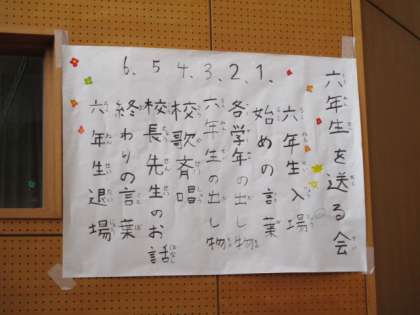 六年生を送る会
六年生入場
1、始めの言葉
2、各学年の出し物
3、六年生の出し物
4、校歌斉唱
5、校長先生のお話
6、終わりの言葉
六年生退場